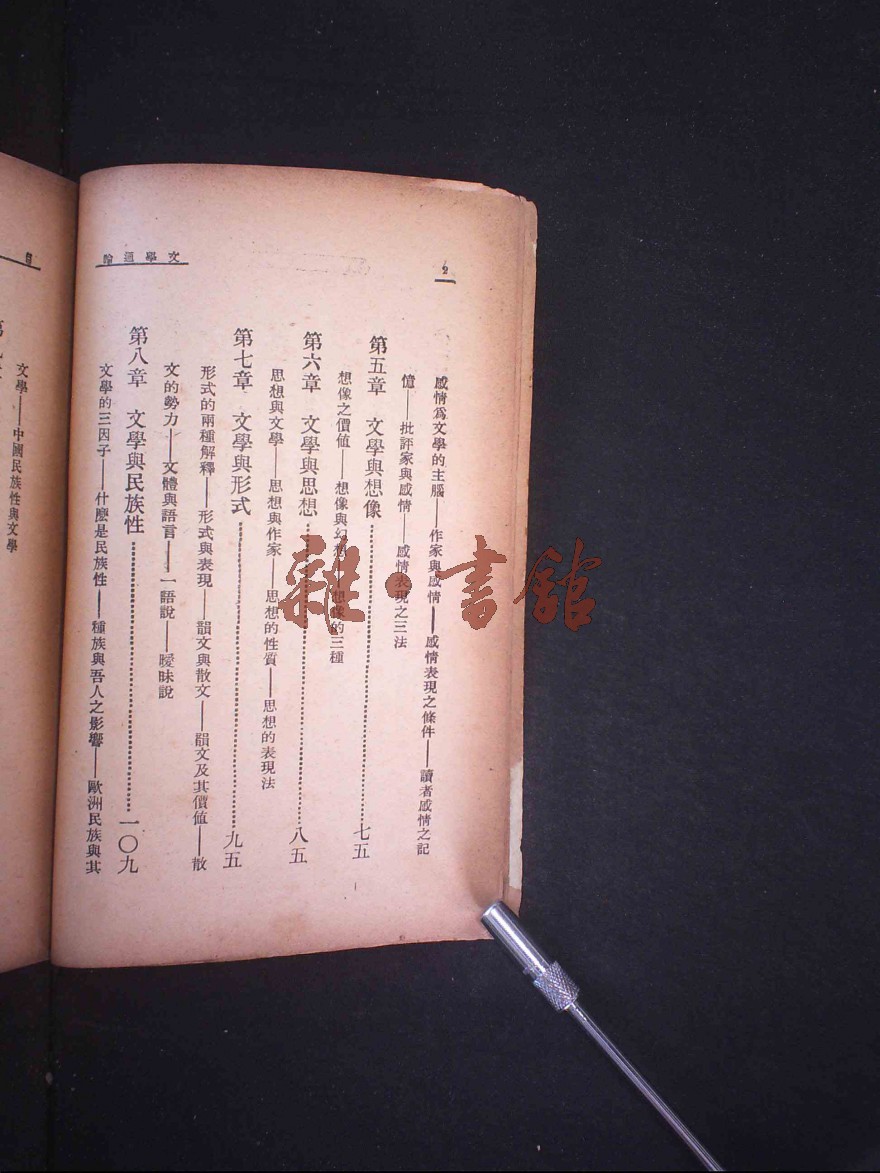 文學通論
2
感情爲文學的主腦——作家與感情——感情表現之條件——讀者感情之記
憶——批評家與感情——感情表現之三法
第五章 文學與想像……七五
想像之價值——想像與幻想——想像的三種
第六章 文學與思想……八五
思想與文學——思想與作家——思想的性質——思想的表現法
第七章 文學與形式……九五
形式的兩種解釋——形式與表現——韻文與散文——韻文及其價值——散
文的勢力——文體與語言——一語說——曖昧說
第八章 文學與民族性……一〇九
文學的三因子——什麽是民族性——種族與吾人之影響——歐洲民族與其
目
文學——中國民族性與文學
雜·書館